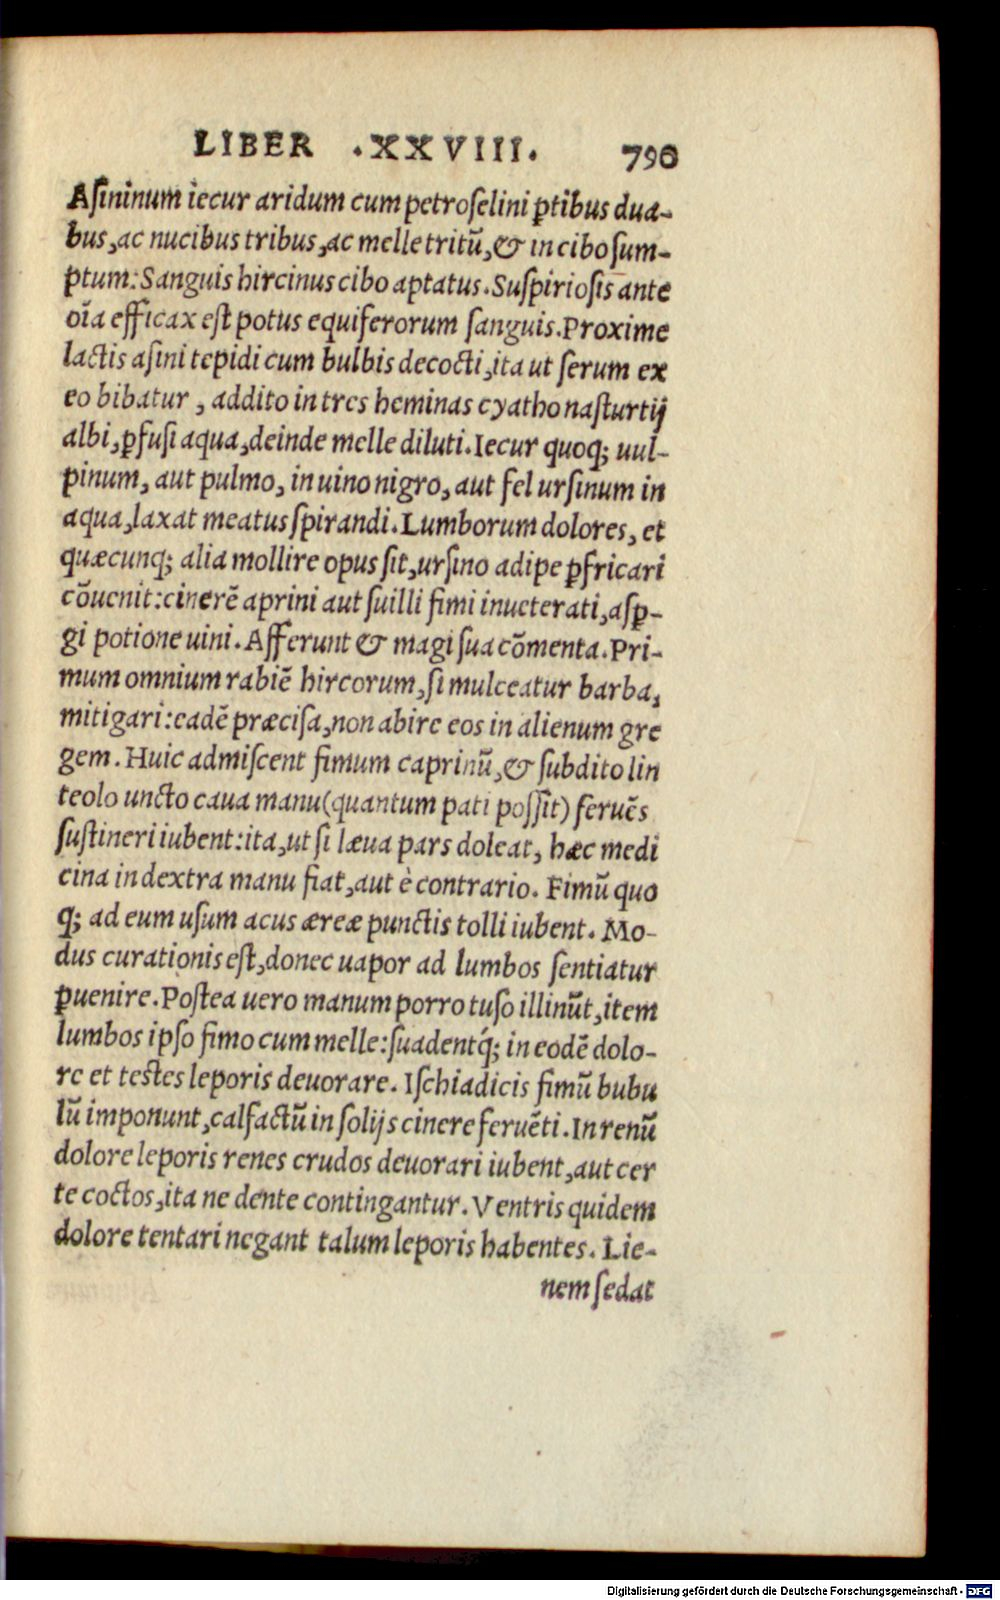 LIBER .XXVIII. 790
Aſininum iecur aridum cum petroſelini ꝑtibus dua-
bus, ac nucibus tribus, ac melle tritũ, & in cibo ſum-
ptum: Sanguis hircinus cibo aptatus. Suſpirioſis ante
oĩa efficax eſt potus equiferorum ſanguis. Proxime
lactis aſini tepidi cum bulbis decocti, ita ut ſerum ex
eo bibatur, addito in tres heminas cyatho naſturtij
albi, ꝑfuſi aqua, deinde melle diluti. Iecur quoq; uul-
pinum, aut pulmo, in uino nigro, aut fel urſinum in
aqua, laxat meatus ſpirandi. Lumborum dolores, et
quæcunq; alia mollire opus ſit, urſino adipe ꝑfricari
cõuenit: cinerẽ aprini aut ſuilli fimi inueterati, aſꝑ-
gi potione uini. Afferunt & magi ſua cõmenta. Pri-
mum omnium rabiẽ hircorum, ſi mulceatur barba,
mitigari: eadẽ præciſa, non abire eos in alienum gre
gem. Huic admiſcent fimum caprinũ, & ſubdito lin
teolo uncto caua manu (quantum pati poſſit) feruẽs
ſuſtineri iubent: ita, ut ſi læua pars doleat, hæc medi
cina in dextra manu fiat, aut è contrario. Fimũ quo
q; ad eum uſum acus æreæ punctis tolli iubent. Mo-
dus curationis eſt, donec uapor ad lumbos ſentiatur
ꝑuenire. Poſtea uero manum porro tuſo illinũt, item
lumbos ipſo fimo cum melle: ſuadentq́; in eodẽ dolo-
re et teſtes leporis deuorare. Iſchiadicis fimũ bubu
lũ imponunt, calfactũ in folijs cinere feruẽti. In renũ
dolore leporis renes crudos deuorari iubent, aut cer
te coctos, ita ne dente contingantur. Ventris quidem
dolore tentari negant talum leporis habentes. Lie-
nem ſedat
Digitalisierung gefördert durch die Deutsche Forschungsgemeinschaft - DFG